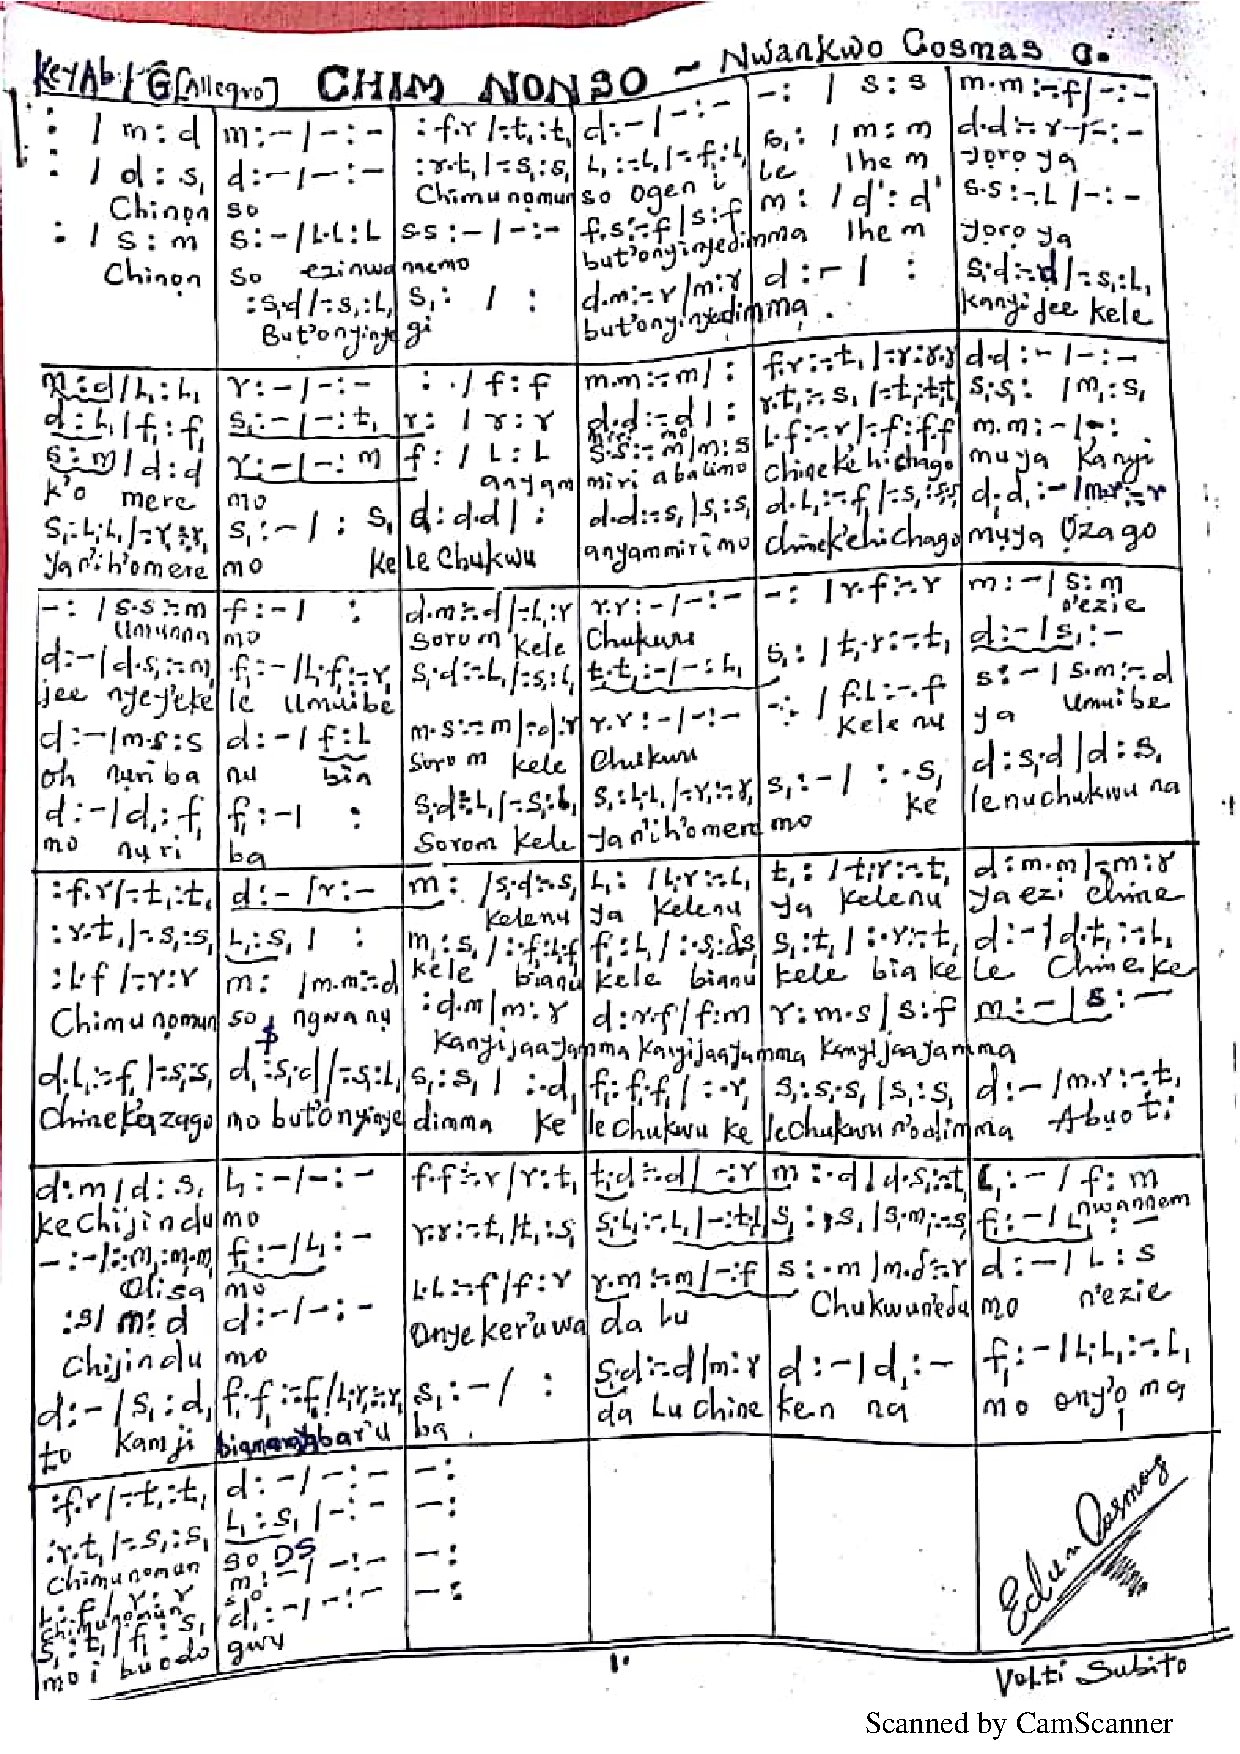 Key Ab / G [Allegro] CHIM NONSO ~ Nwankwo Cosmas O.
: / m : d | m : – / – : – | : f.r / –.t, : t, | d : – / – : – | – : / s : s | m.m :–.f / – : –
: / d : s, | d : – / – : – | : r.t, / –.s, : s, | L, :–.L, / –.f, : L, | s, : / m : m | d.d :–.r / – : –
Chinọn | so | Chimunọmun | so ogen i | Le Ihe m | yọrọ ya
: / s : m | s : – / L.L : L | s.s : – / – : – | f.s :–.f / s : f | m : / d' : d' | s.s :–.L / – : –
Chinọn | so ezinwa | nnemo | but'onyinyedimma | Ihe m | yọrọ ya
: s,.d / –.s, : L, | s, : / : | d.m :–.r / m : r | d : – / : | s,.d :–.d / –.s, : L,
But'onyinye | gi | but'onyinyedimma. | Kanyi jee kele
m : d / L, : L, | r : – / – : – | : . / f : f | m.m :–.m / : | f.r :–.t, / –.r : r.r | d.d : – / – : –
d : L, / f, : f, | s, : – / – : t, | r : / r : r | d.d :–.d / : | r.t, :–.s, / –.t, : t,.t, | s,.s, : / m, : s,
s : m / d : d | r : – / – : m | f : / L : L | s.s :–.m / m : s | L.f :–.r / –.f : f.f | m.m : – / – :
k'o mere | mo | anyam | miri abalimo | chineke'hichago | muya Kanyi
s, : L,.L, / –.r, : r, | s, : – / : s, | d : d.d / : | d.d :–.s, / s, : s, | d.L, :–.f, / –.s, : s,.s, | d,.d, : – / m.r :–.r
Ya n'ih'omere | mo ke | le Chukwu | anyammirimo | chinek'ehichago | mụya Ọzago
– : / s.s :–.m | f : – / : | d.m :–.d / –.L, : r | r.r : – / – : – | – : / r.f :–.r | m : – / s : m
Umunna | mo | sorum kele | Chukwu | n'ezie
d : – / d.s, :–.m, | f, : – / L,.f, :–.r, | s,.d :–.L, / –.s, : L, | t,.t, : – / – : L, | s, : / t,.r :–.t, | d : – / s, : –
jee nyeye'ke | le Umuibe
d : – / m.s : s | d : – / f : L | m.s :–.m / –.d : r | r.r : – / – : – | – : / f.L :–.f | s : – / s.m :–.d
oh nuri ba | nu bia | sorom kele | Chukwu | Kele nu | ya Umuibe
d : – / d, : f, | f, : – / : | s,.d :–.L, / –.s, : L, | s, : L,.L, / –.r, :–.r, | s, : – / : .s, | d : s,.d / d : s,
mo nuri | ba | Sorom kele | Ya n'ih'omere | mo ke | lenuchukwu na
: f.r / –.t, : t, | d : – / r : – | m : / s,.d :–.s, | L, : / L,.r :–.L, | t, : / t,.r :–.t, | d : m.m / –.m : r
kelenu | ya kelenu | ya kelenu | ya ezi chine
: r.t, / –.s, : s, | L, : s, / : | m, : s, / : .f, : L,.f, | f, : L, / : .s, : | s, : t, / : .r :–.t, | d : – / d.t, :–.L,
kele bianu | kele bianu | kele bia ke | Le Chineke
: L.f / –.r : r | m : / m.m :–.d | : d.m / m : r | d : r.f / f : m | r : m.s / s : f | m : – / s : –
Chimunọmun | so ngwa nu | Kanyijaayamma Kanyijaayamma Kanyijaayamma
d.L, :–.f, / –.s, : s, | d, : s,.d / –.s, : L, | s, : s, / : .d, | f, : f,.f, / : .r, | s, : s,.s, / s, : s, | d : – / m.r :–.t,
Chinek'ezago | mo but'onyinye | dimma ke | lechukwu ke | lechukwu n'odimma Abuoti
d : m / d : s, | L, : – / – : – | f.f :–.r / r : t, | t,.d :–.d / – : r | m : .d / d.s, :–.t, | L, : – / f : m
ke Chijindu | mo | nwannem
– : – / –.m, : m,.m, | f, : – / L, : – | r.r :–.t, / t, : s, | s,.L, :–.L, / – : t, | s, : .s, / s,.m, :–.s, | f, : – / L, : –
Olisa | mo
: s / m : d | d : – / – : – | L.L :–.f / f : r | r.m :–.m / – : f | s : .m / m.d :–.r | d : – / L : s
Chijindu | mo | Onyeker'uwa | da Lu | Chukwun'edu | mo n'ezie
d : – / s, : d, | f,.f, :–.f, / L,.r, :–.r, | s, : – / : | s,.d :–.d / m : r | d : – / d, : – | f, : – / L,.L, :–.L,
to Kamji | ba. | da Lu chine | ken na | mo ony'o ma
: f.r / –.t, : t, | d : – / – : – | – :
: r.t, / –.s, : s, | L, : s, / – : – | – :
Chimunoman | so DS
L : f / r : r | m : – / – : – | – :
Chimunomun | so
s, : t, / f, : s, | d, : – / – : – | – :
mo i buodo | gwu
Edu n Cosmas
1.
Volti Subito
Scanned by CamScanner